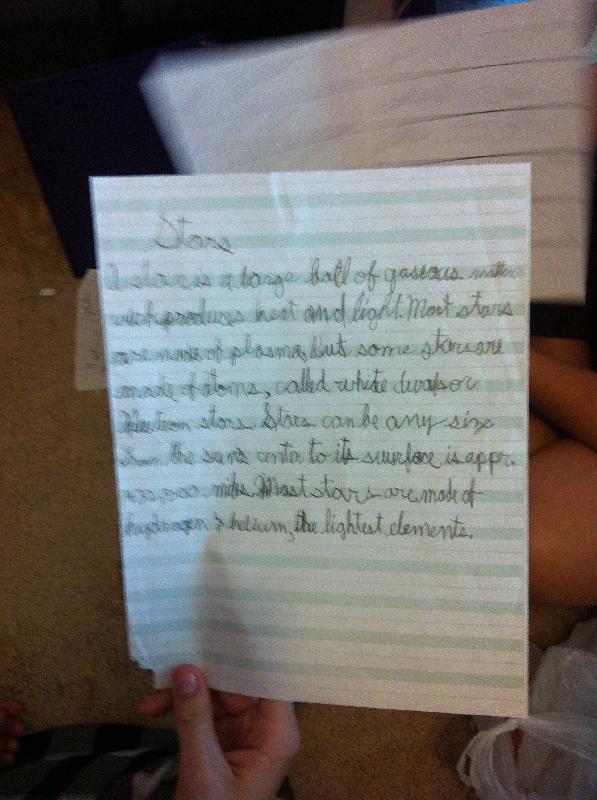 Stars
A star is a large ball of gaseous matter
wich produces heat and light. Most stars
are made of plasma, but some stars are
made of atoms, called white dwarfs or
Neutron stars. Stars can be any size
from the suns center to its surrface is appr.
432,000 miles. Most stars are made of
hydrogen & helium, the lightest elements.